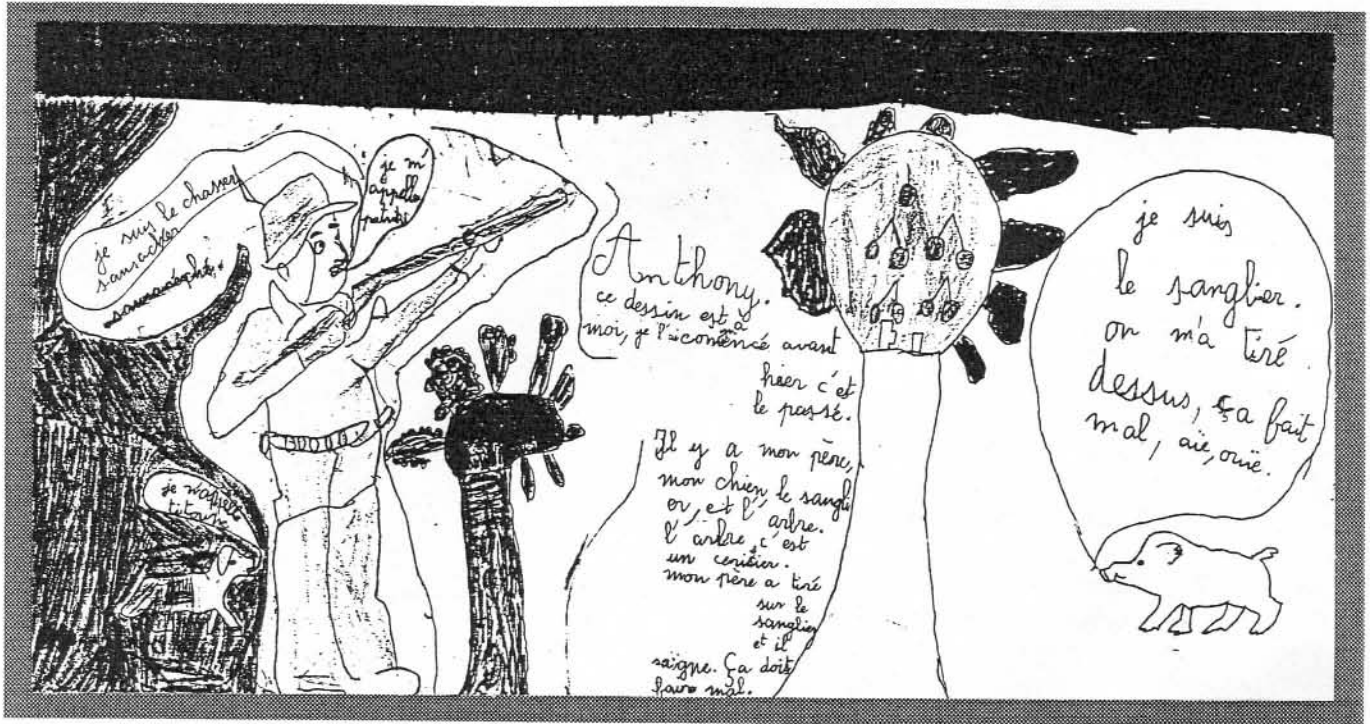 je suis le chasseur
sans
je m'
appelle
je m'appelle
Anthony.
ce dessin est à
moi, je l'ai comencé avant
hier c'ét
le passé.
Il y a mon père,
mon chien, le sangli
er, et l'arbre.
l'arbre, c'est
un cerisier.
mon père a tiré
sur le
sanglier
et il
saigne. Ça doit
faire mal.
je suis
le sanglier.
on m'a tiré
dessus, ça fait
mal, aïe, ouïe.